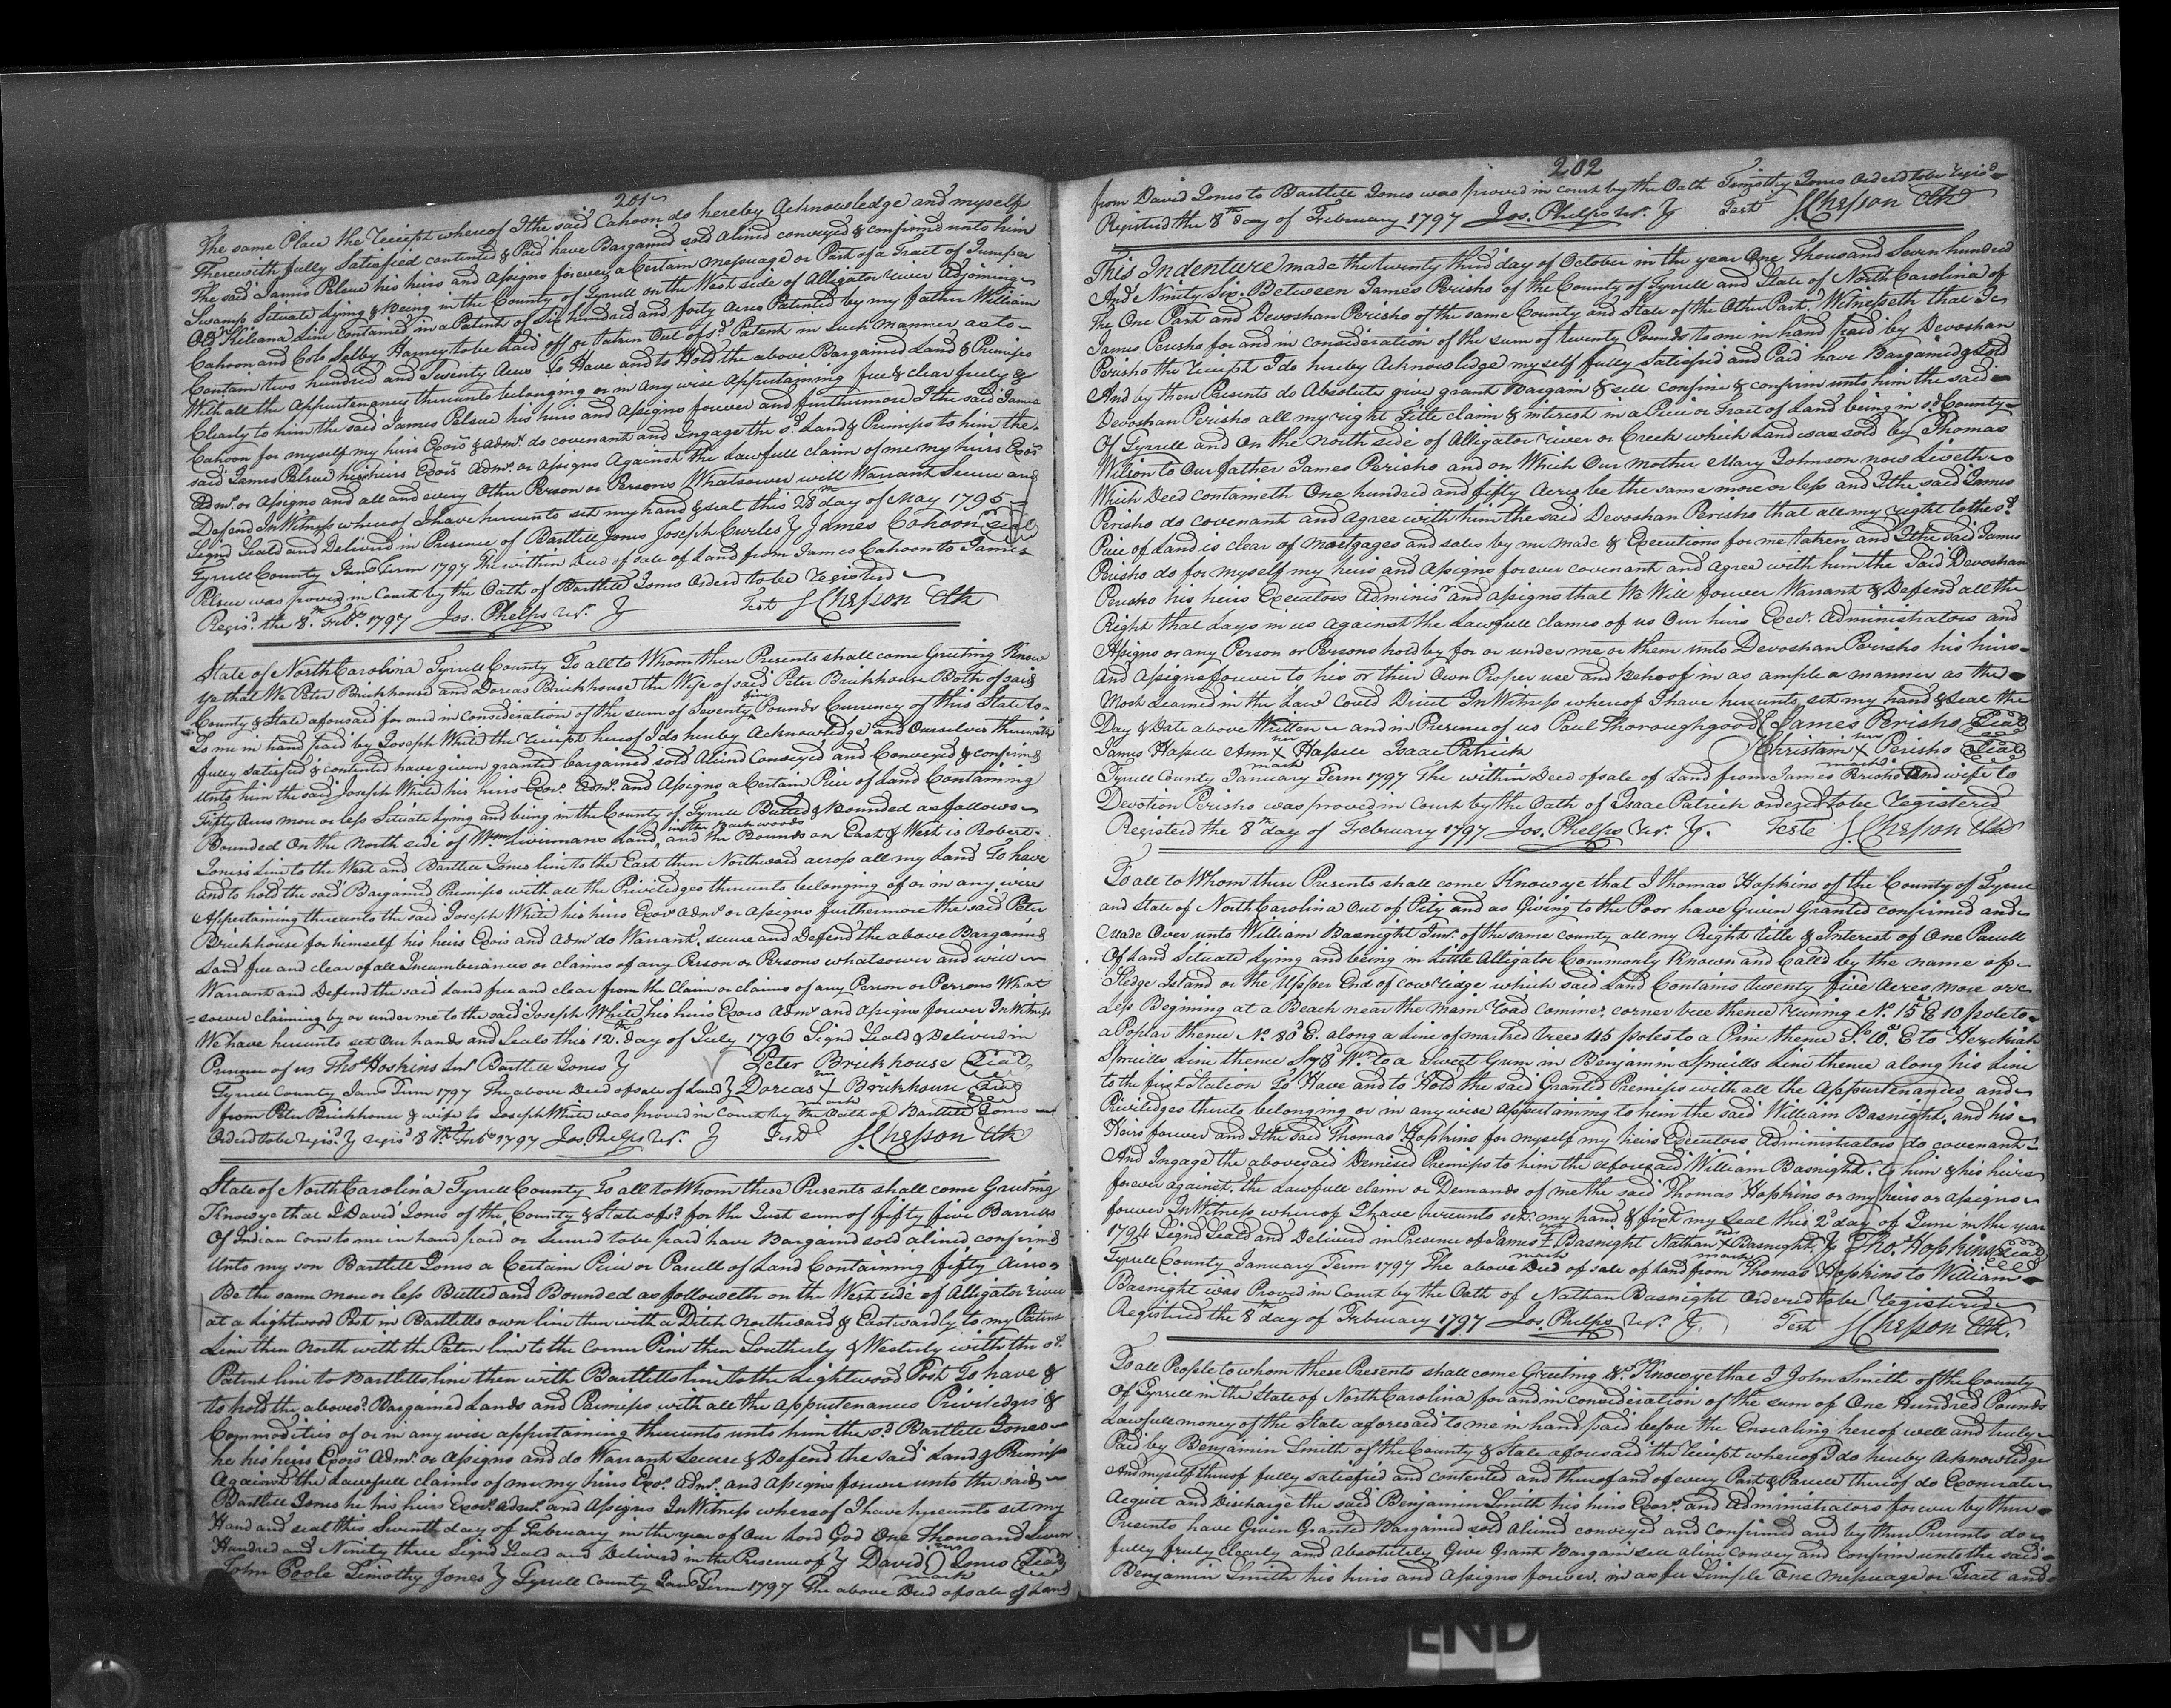 201
The same Place the Receipt whereof I the said Cahoon do hereby Acknowledge and myself
Therewith fully Satisfied contented & Paid have Bargained sold aliend conveyed & confirmed unto him
The said James Pelsue his heirs and Assigns forever, a Certain Messuage or Part of a Tract of Juniper
Swamp Situate Lying & Being in the County of Tyrrell on the West side of Alligator River Adjoining
Line contained in a Patent of Six hundred and forty Acres Patented by my father William
Cahoon and Colo Selby Harney to be Laid off or taken Out of sd Patent in Such Manner as to
Contain two hundred and Twenty Acres To Have and to Hold the above Bargained Land & Premises
With all the Appurtenances thereunto belonging or in Any wise Appertaining free & clear freely &
Clearly to him the said James Pelsue his heirs and Assigns forever and furthermore I the said James
Cahoon for myself my heirs Exors & Admrs do covenant and Ingage the sd Land & Premises to him the
said James Pelsue his heirs Exors Admrs or Assigns Against the Lawfull claim of me my heirs Exors
Admrs or Assigns and all and every Other Person or Persons Whatsoever will Warrant Secure and
Defend In Witness whereof I have hereunto set my hand & seal this 28th day of May 1795
Signd Seald and Deliverd in Presence of Bartlett Jones Joseph Curles } James Cahoon Seal
Tyrrell County Janr Term 1797 The within Deed of sale of Land from James Cahoon to James
Pelsue was proved in Court by the Oath of Bartlett Jones Orderd to be registerd
Regisd the 8th Feb 1797 Jos. Phelps Rr. } Test S Chesson Clk
State of North Carolina Tyrrell County To all to Whom these Presents shall come Greeting Know
Ye that We Peter Brickhouse and Dorcas Brickhouse the Wife of said Peter Brickhouse Both of said
County & State aforesaid for and in consideration of the sum of Seventy five Pounds Currency of this State to
To me in hand paid by Joseph White the Receipt hereof I do hereby Acknowledge and Ourselves therewith
fully satisfied & contented have given granted bargained sold Aliend Conveyed and Conveyed & confirmd
Unto him the said Joseph White his heirs Exors Admrs and Assigns a Certain Piece of Land Containing
Fifty Acres more or less Situate Lying and being in the County of Tyrrell Butted & Bounded as follows
Bounded On the North side of Wm Liverman's Land, in the Back woods and the Bounds on East & West is Robert
Jones's Line to the West and Bartlett Jones line to the East then Northward across all my Land To have
and to hold the said Bargained Premises with all the Priviledges thereunto belonging of or in any wise
Appertaining thereunto the said Joseph White his heirs Exors Admrs or Assigns furthermore the said Peter
Brickhouse for himself his heirs Exors and Admrs do Warrant, secure and Defend the above Bargained
Land free and clear of all Incumberances or claims of any Person or Persons whatsoever and will
Warrant and Defend the said Land free and clear from the Claim or claims of any Person or Persons What
=soever claiming by or under me to the said Joseph White, his heirs Exors Admrs and Assigns forever In Witness
We have hereunto set Our hands and Seals this 12th day of July 1796 Signd Seald & Delivered in
Presence of us Thos Hoskins Bartlett Jones } Peter Brickhouse Seal
Tyrrell County Janr Term 1797 The above Deed of sale of Land } Dorcas her X mark Brickhouse Seal
from Peter Brickhouse & wife to Joseph White was proved in Court by the Oath of Bartlett Jones
Orderd to be regisd } regisd 8th Feb 1797 Jos. Phelps Rr. } Test S Chesson Clk
State of North Carolina Tyrrell County To all to Whom these Presents shall come Greeting
Know ye that I David Jones of the County & State afsd for the Just sum of fifty five Barrills
Of Indian Corn to me in hand paid or Secured to be paid have Bargaind sold aliend confirmd
Unto my son Bartlett Jones a Certain Piece or Parcell of Land Containing fifty Acres
Be the same more or less Butted and Bounded as followeth on the West side of Alligator river
at a Lightwood Post in Bartletts own line then with a Ditch Northward & Eastwardly to my Patent
Line then North with the Paten line to the corner Pine then Southerly & Westerly with the sd
Patent line to Bartletts line then with Bartletts line to the Lightwood Post To have &
to hold the abovesd Bargained Lands and Premises with all the appurtenances Priviledges &
Commodities of or in any wise appertaining thereunto unto him the sd Bartlett Jones
he his heirs Exors Admrs or Assigns and do Warrant Secure & Defend the said Land & Premises
Against the Lawfull claims of me my heirs Exors Admrs and Assigns forever unto the said
Bartlett Jones he his heirs Exors Admrs and Assigns In Witness whereof I have hereunto set my
Hand and seal this Seventh day of February in the year of Our Lord God One Thousand Seven
Hundred and Ninety three Signd Seald and Deliverd in the Presence of } David his mark Jones Seal
John Poole Timothy Jones } Tyrrell County Janr Term 1797 The above Deed of sale of Land
202
from David Jones to Bartlett Jones was proved in court by the Oath Timothy Jones Orderd to be Regisd
Registerd the 8th day of February 1797 Jos. Phelps Rr. } Test S Chesson Clk
This Indenture made the twenty third day of October in the year One Thousand Seven hundred
And Ninety Six. Between James Perisho of the County of Tyrrell and State of North Carolina of
The One Part and Devoshan Perisho of the same County and State of the Other Part, Witnesseth that I
James Perisho for and in consideration of the sum of twenty Pounds to me in hand paid by Devoshan
Perisho the Receipt I do hereby Acknowledge myself fully Satisfied and Paid have Bargained & Sold
And by these Presents do Absolute give grant Bargain & sell confine & confirm unto him the said
Devoshan Perisho all my right Title claim & interest in a Piece or Tract of Land being in sd County
Of Tyrrell and On the North side of Alligator river or Creek which Land was sold by Thomas
Wilson to Our father James Perisho and on Which Our Mother Mary Johnson now Liveth
Which Deed containeth One hundred and fifty Acres be the same more or less and I the said James
Perisho do covenant and Agree with him the said Devoshan Perisho that all my right to the sd
Piece of Land is clear of Mortgages and sales by me Made & Executions for me taken and I the said James
Perisho do for myself my heirs and Assigns forever covenant and Agree with him the Said Devoshan
Perisho his heirs Executors Adminisr and Assigns that We Will forever Warrant & Defend all the
Right that Lays in us against the Lawfull claims of us Our heirs Execr. Administrators and
Assigns or any Person or Persons hold by for or under me or them unto Devoshan Perisho his heirs
And Assigns forever to his or their Own Proper use and Behoof in as ample a manner as the
Most Learned in the Law Could Direct In Witness whereof I have hereunto set my hand & seal the
Day & Date above Written and in Presence of us Paul Thoroughgood } James Perisho Seal
James Hassell Ann her X mark Hassell Isaac Patrick } Christain her X mark Perisho Seal
Tyrrell County January Term 1797 The within Deed of sale of Land from James Perisho And wife to
Devotion Perisho was proved in Court by the Oath of Isaac Patrick ordered to be Registered
Registerd the 8th day of February 1797 Jos. Phelps Rr. }. Teste S Chesson Clk
To all to Whom these Presents shall come Know ye that I Thomas Hopkins of the County of Tyrrell
and State of North Carolina Out of Pity and as Giving to the Poor have Given Granted confirmed and
Made Over unto William Basnight Junr. of the same county all my Right title & Interest of One Parcell
Of Land Situate Lying and being in Little Alligator Commonly Known and Called by the name of
Sledge Island or the Upper End of Cow ridge which said Land Contains twenty five Acres more or
less Begining at a Beach near the Main road corner tree thence Runing No. 15 E 10 pole to
a Poplar thence No. 80d E. along a Line of marked trees 45 poles to a Pine thence So. 10 E to Hezekiah
Spruills Line thence So 78d W to a Sweet Gum in Benjamin Spruills Line thence along his Line
to the first Station To Have and to Hold the said Granted Premises with all the Appurtenances, and
Priviledges thereto belonging or in any wise Appertaining to him the said William Basnight, and his
Heirs forever and I the said Thomas Hopkins for myself my heirs Executors Administrators do covenant
And Ingage the abovesaid Demised Premises to him the aforesaid William Basnight. to him & his heirs
forever against. the Lawfull claim or Demands of me the said Thomas Hopkins or my heirs or assigns
forever In Witness whereof I have hereunto set. my hand & fixd my Seal this 2d day of June in the year
1794 Signd Seald and Deliverd in Presence of James his mark Basnight Nathan his X mark Basnight } Thos. Hopkins Seal
Tyrrell County January Term 1797 The above Deed of sale of Land from Thomas Hopkins to William
Basnight was Proved in Court by the Oath of Nathan Basnight Ordered to be Registered
Registered the 8th day of February 1797 Jos. Phelps Rr. }. Test S Chesson Clk.
To all People to whom these Presents shall come Greeting &c. Know ye that I John Smith of the County
Of Tyrrell in the State of North Carolina for and in consideration of the sum of One Hundred Pounds
Lawfull money of the State aforesaid to me in hand paid before the Ensealing hereof well and truly
Paid by Benjamin Smith of the County & State aforesaid the Receipt whereof I do hereby Acknowledge
And myself thereof fully satisfied and contented and thereof and of every Part & Parcell thereof do Exonerate
Acquit and Discharge the said Benjamin Smith his heirs Exors. and Administrators forever by these
Presents have Given Granted Bargained sold Aliend conveyed and Confirmed and by these Presents do
fully freely clearly and Absolutely Give Grant Bargain sell alien convey and confirm unto the said
Benjamin Smith his heirs and Assigns forever, in as fee Simple One Messuage or Tract and
END